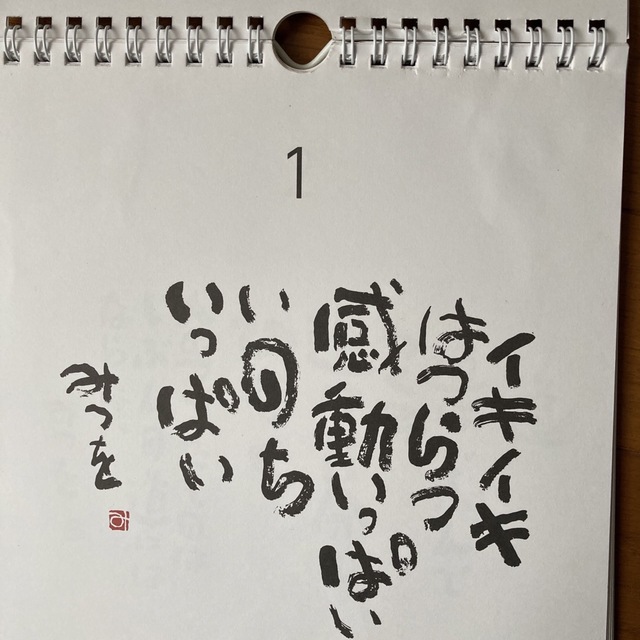 1
イキイキ
はつらつ
感動いっぱい
いのち
いっぱい
みつを